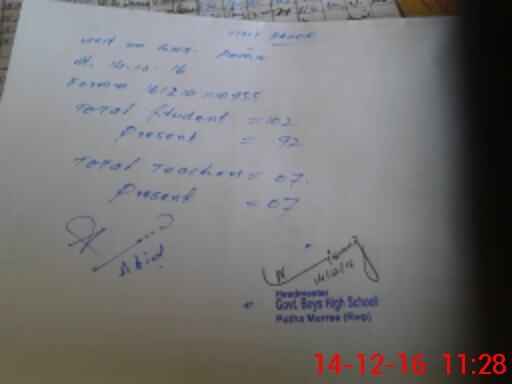 VISIT PROOF
visit on
dt. 14.12.16
Total Student = 102
Present = 92
Total Teachers = 07.
Present = 07
Abid
14/12/16
Headmaster
Govt. Boys High School
Potha Murree (Rwp)
14-12-16 11:28